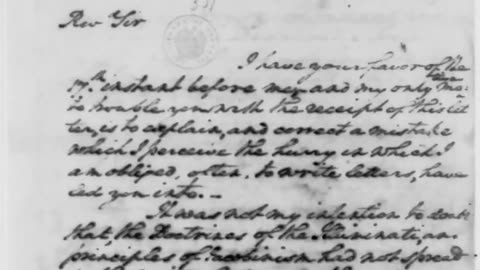 Rev Sir
I have your favor of the
17th instant before me, and my only mo-
tive
to trouble you with the receipt of this let
ter, is to explain, and correct a mistake
which I perceive the hurry in which I
am obliged, often, to write letters, have
led you into.—
It was not my intention to doubt
that, the doctrines of the Iluminati, an
principles of Jacobinism had not spread